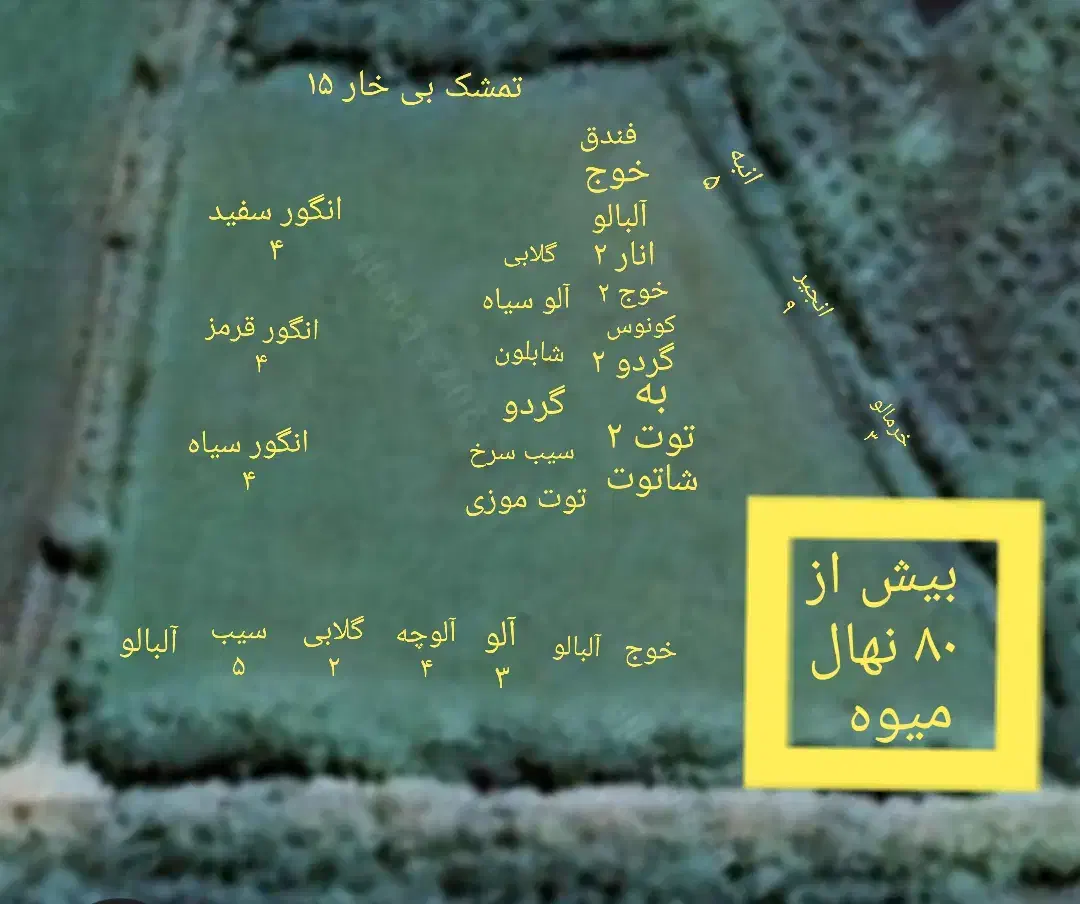 تمشک بی خار ۱۵
فندق
خوج
آلبالو
انار ۲
خوج ۲
کونوس
گردو ۲
به
توت ۲
شاتوت
انبه
۵
انجیر
۹
خرمالو
۲
گلابی
آلو سیاه
شابلون
گردو
سیب سرخ
توت موزی
انگور سفید
۴
انگور قرمز
۴
انگور سیاه
۴
خوج
آلبالو
آلو
۳
آلوچه
۴
گلابی
۲
سیب
۵
آلبالو
بیش از
۸۰ نهال
میوه